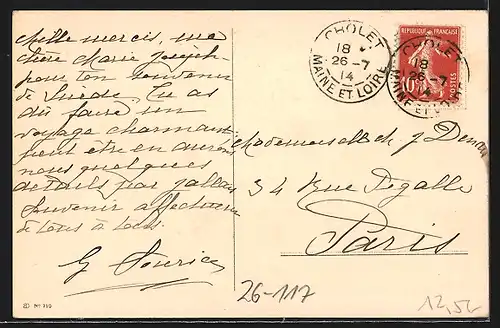 Mille mercis, ma
chère Marie Joseph
pour ton souvenir
de Suède. Tu as
dû faire un
voyage charmant
peut être en aurons
nous quelques
détails par
Souvenir affectueux
de tous à tous
G
CHOLET
18
26-7
14
MAINE ET LOIRE
REPUBLIQUE FRANÇAISE
POSTES
10
CHOLET
18
26-7
14
MAINE ET LOIRE
Mademoiselle
34 Rue Pigalle
Paris
26-117
12,50
No 710